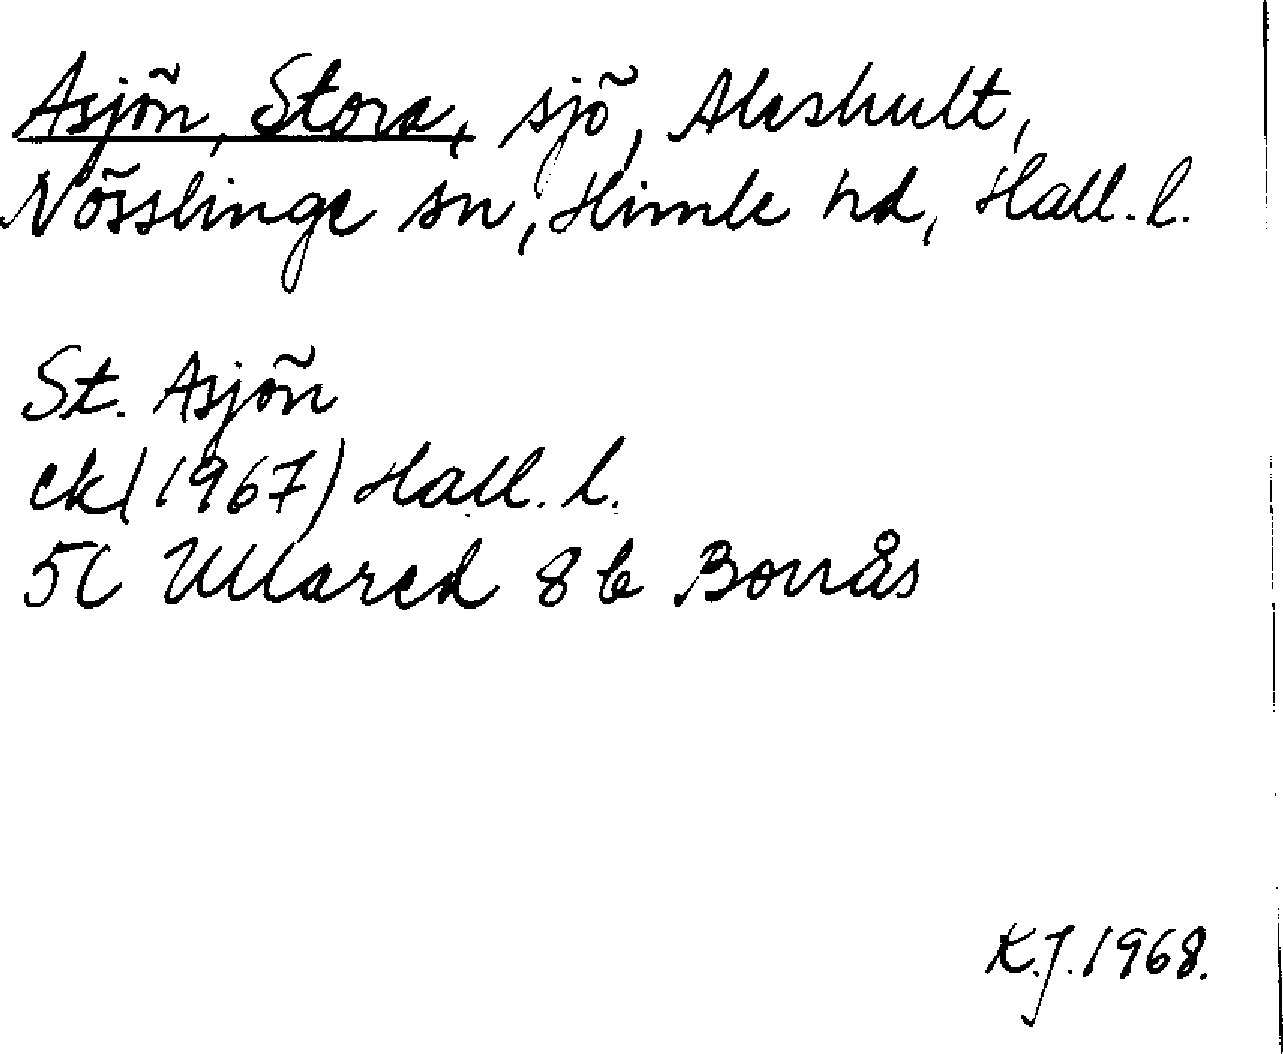 Asjön, Stora, sjö, Alashult,
Nösslinge sn, Himle hd, Hall. l.
St. Asjön
ek (1967) Hall. l.
5C Ullared 8b Bonås
K.J. 1968.